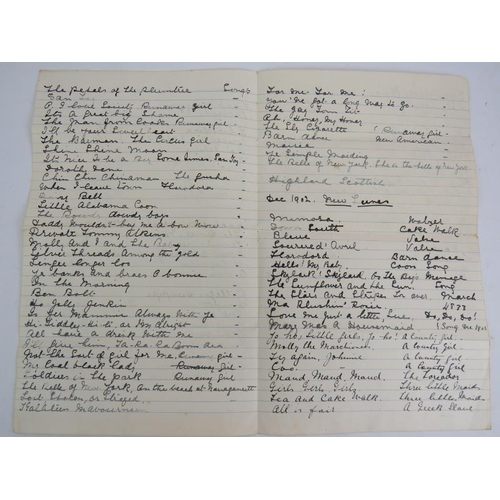 The Petals of the Plumtree Songs
San
A I love Society Runaway Girl
It's a Great big Shame
The Man from Cooks Runaway girl -
I'll be your Sweetheart
The Dairman The Circus girl
Shine Shine Moon
It's Nice to be a Boy Some times
Dorothy Dean
Chin Chin Chinaman The Geisha
When I leave Town Theodora
Bell
Little Alabama Coon
The dowdy boys
Daddy Wouldn't buy Me a bow wow
Private Tommy Atkins
Molly and I and the Baby
Silver Threads Among the Gold
Linger longer Loo
Ye banks and braes O bonnie
In the Morning
Ben Bolt
His Lolly
Mammie Always With Ye
Hi-Tiddley-hi-ti, are My alright
All have a Drink With Me
Ta-Ra-ra Boom dea
Not the Sort of Girl for Me Runaway girl -
My Coal black Lady Runaway girl -
Soldiers in the Park Runaway Girl
The belle of New York, On the beach at Narragansett
Lost Stolen, or Strayed,
Kathleen Mavourneen
For Me For Me!
You've Got a long Way to Go
The Gay Tom Tit
Ah, Honey, My Honey
The Sly Cigarette (Runaway girl -
Barn dance New American.
Maisie
Ye Simple Maiding
The Belle of New York. She is the belle of New York
Highland Scottish
Dec 1902. New Tunes
Memora Walzes
South Cake Walk
Bleue Valse
Souvered' Avril Valse
Florodora Barn dance
Hello! My Baby Coon Song
Skylark! Skylark! by the Boys Message
The Sunflower and the Sun. Song
The Stars and Stripes For ever. March
Una Ahushin' Dois 4583
Love Me Just a little Sue. Do, Do, Do!
Mary Was a Housemaid 1 Song
Yo ho, little Girls, Yo ho! A Country Girl.
Molly the Marchioness. A Country Girl
Try again, Johnnie A Country Girl
Coo. A Country Girl
Maud, Maud, Maud. The Toreador
Girls, Girls, Girls Three little Maids
Tea and Cake Walk. Three little Maids
All is fair A Greek Slave